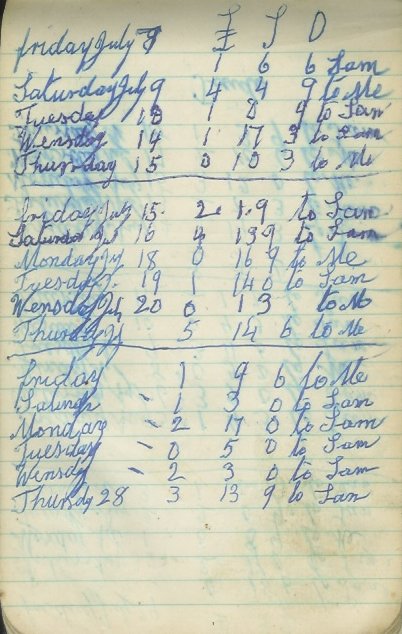 £ S D
friday July 8 1 6 6 Sam
Saturday July 9 4 4 9 to Me
Tuesday 13 1 0 9 to Sam
Wensday 14 1 17 3 to Sam
Thursday 15 0 10 3 to Me
friday July 15. 2. 1. 9 to Sam
Saturday Jul 16 4 13 9 to Sam
Monday Jy 18 0 16 9 to Me
Tuesday J. 19 1 14 0 to Sam
Wensday July 20 0 13 to M
Thursday 21 5 14 6 to Me
friday 1 9 6 to Me
Saturdy - 1 3 0 to Sam
Monday - 2 17 0 to Sam
Tuesday - 0 5 0 to Sam
Wensdy - 2 3 0 to Sam
Thursdy 28 3 13 9 to Sam